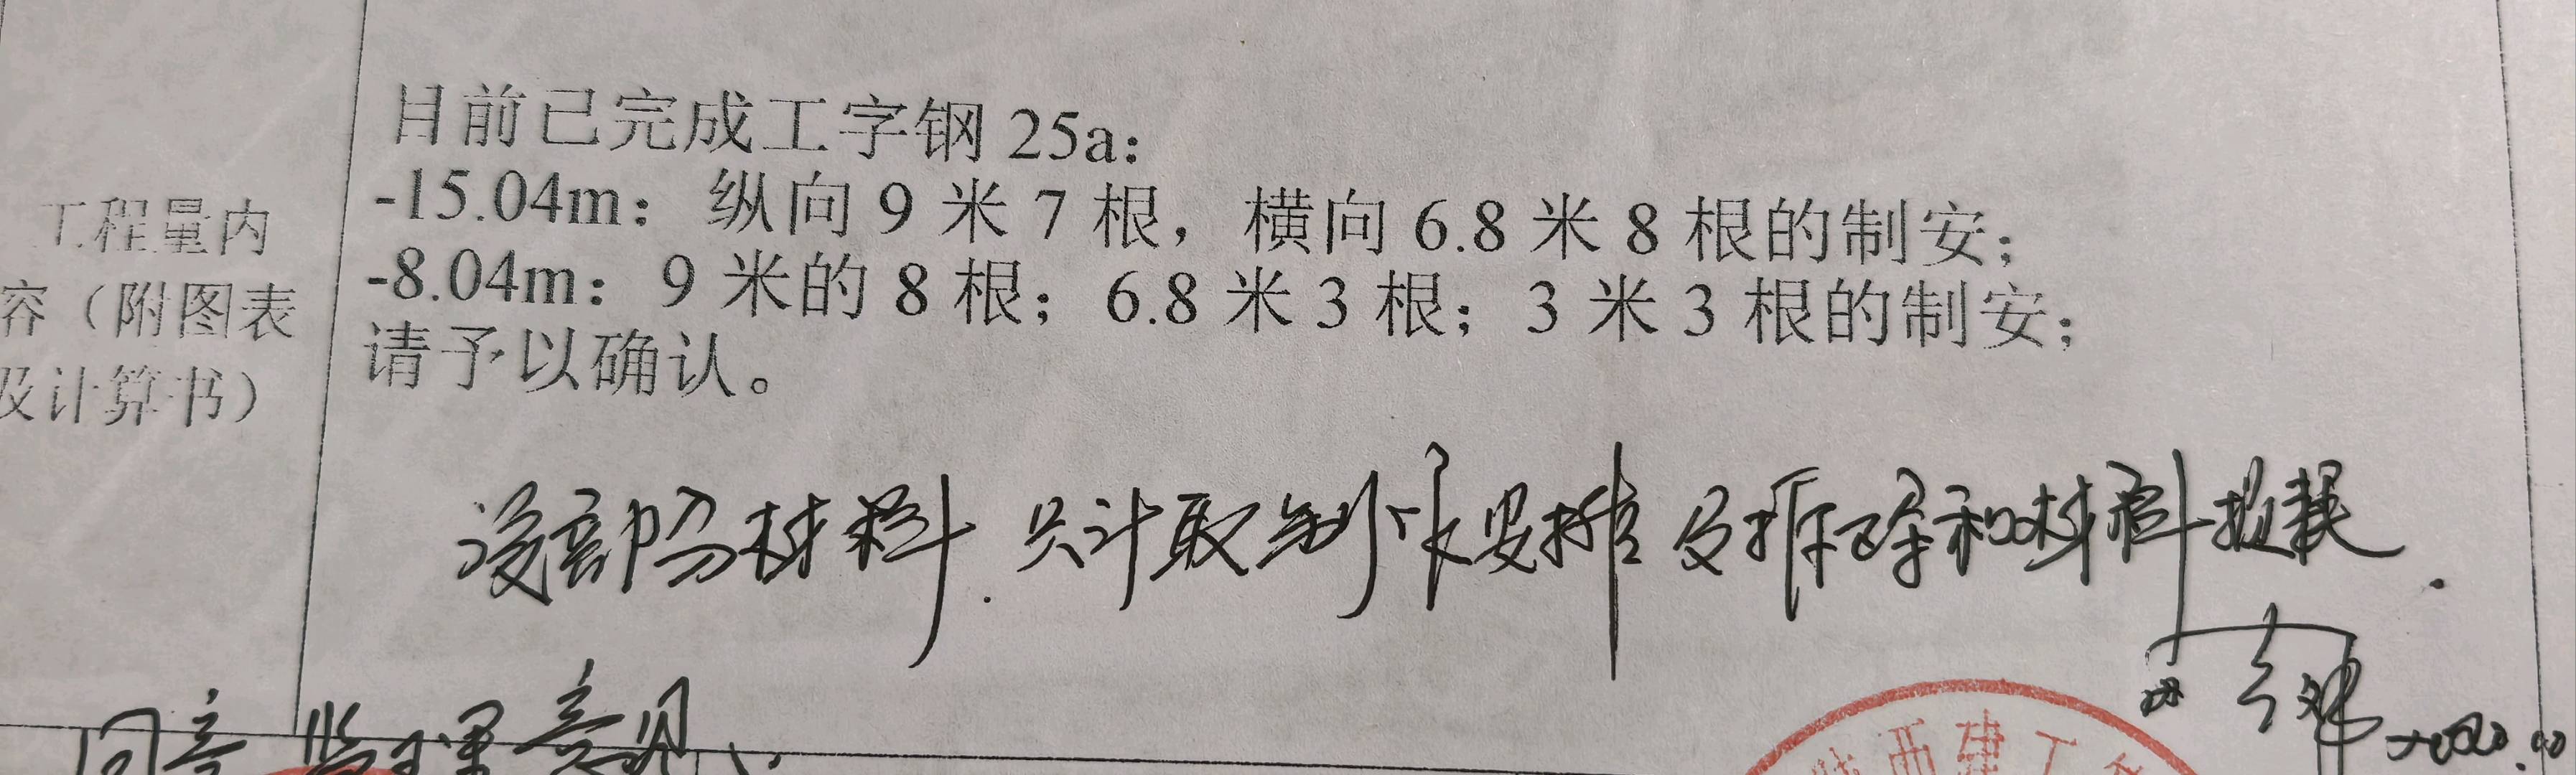 目前已完成工字钢 25a：
-15.04m：纵向 9 米 7 根，横向 6.8 米 8 根的制安；
-8.04m：9 米的 8 根；6.8 米 3 根；3 米 3 根的制安；
请予以确认。
工程量内
容（附图表
及计算书）
该部分材料.只计取制作安排及拆除和材料损耗.
同意监理意见
陕西建工